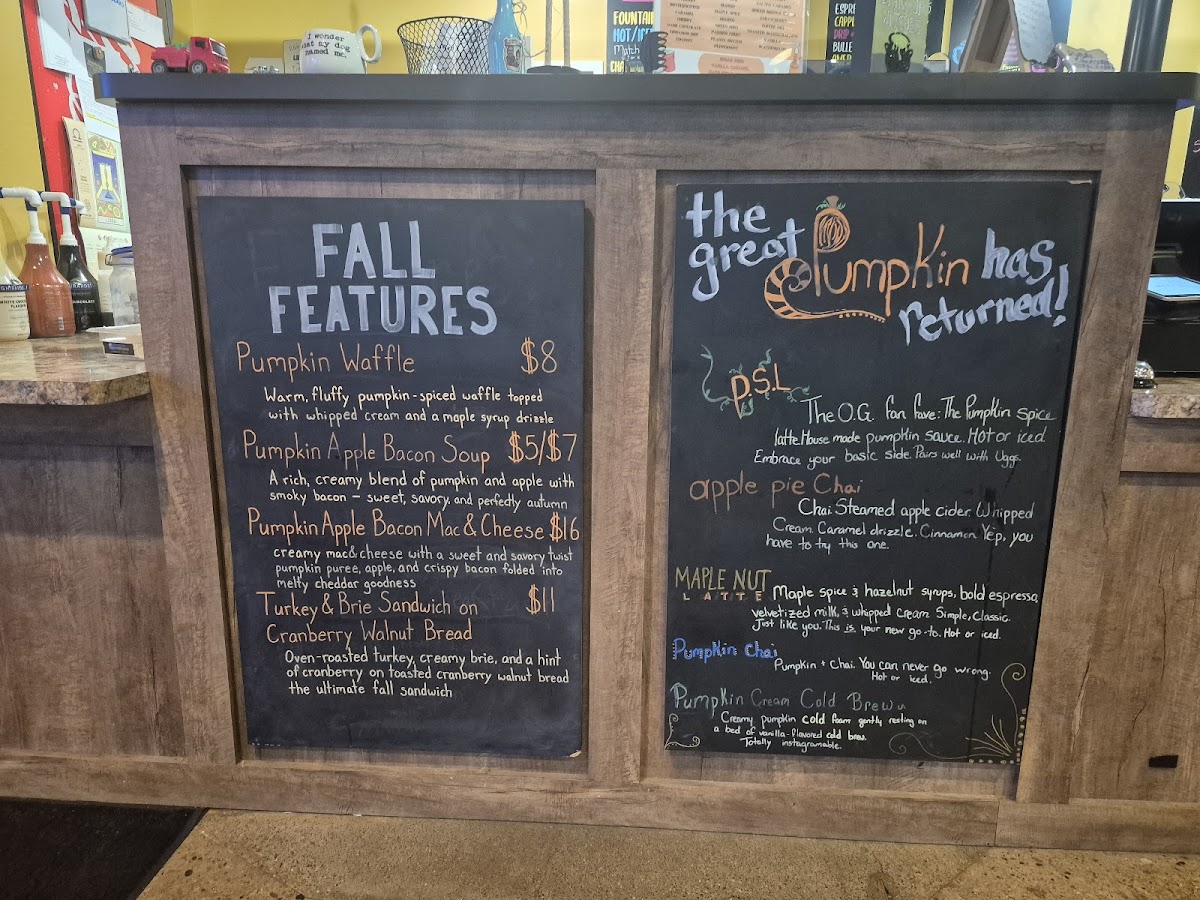 I wonder
what my dog
named me.
FOUNTAIN
HOT/ICE
Match
ESPRE
CAPPU
DRIP
BULLE
FALL
FEATURES
Pumpkin Waffle $8
Warm, fluffy pumpkin-spiced waffle topped
with whipped cream and a maple syrup drizzle
Pumpkin Apple Bacon Soup $5/$7
A rich, creamy blend of pumpkin and apple with
smoky bacon – sweet, savory, and perfectly autumn
Pumpkin Apple Bacon Mac & Cheese $16
creamy mac & cheese with a sweet and savory twist
pumpkin puree, apple, and crispy bacon folded into
melty cheddar goodness
Turkey & Brie Sandwich on $11
Cranberry Walnut Bread
Oven-roasted turkey, creamy brie, and a hint
of cranberry on toasted cranberry walnut bread
the ultimate fall sandwich
the
great Pumpkin has
returned!
P.S.L
The O.G. fan fave: The Pumpkin spice
latte. House made pumpkin sauce. Hot or iced
Embrace your basic side. Pairs well with Uggs.
apple pie Chai
Chai. Steamed apple cider. Whipped
Cream. Caramel drizzle. Cinnamon. Yep, you
have to try this one.
MAPLE NUT
LATTE
Maple spice & hazelnut syrups, bold espresso,
velvetized milk, & whipped cream. Simple, Classic.
Just like you. This is your new go-to. Hot or iced.
Pumpkin Chai
Pumpkin + Chai. You can never go wrong.
Hot or iced.
Pumpkin Cream Cold Brew
Creamy pumpkin cold foam gently resting on
a bed of vanilla-flavored cold brew.
Totally instagramable.